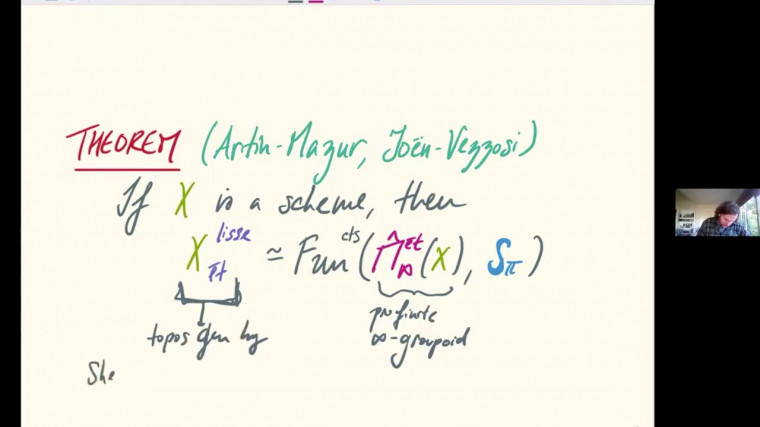 THEOREM (Artin-Mazur, Toën-Vezzosi)
If X is a scheme, then
X_ét^lisse ≃ Fun^cts(Π̂_∞^ét(X), S_π)
topos gen by
profinite
∞-groupoid
She